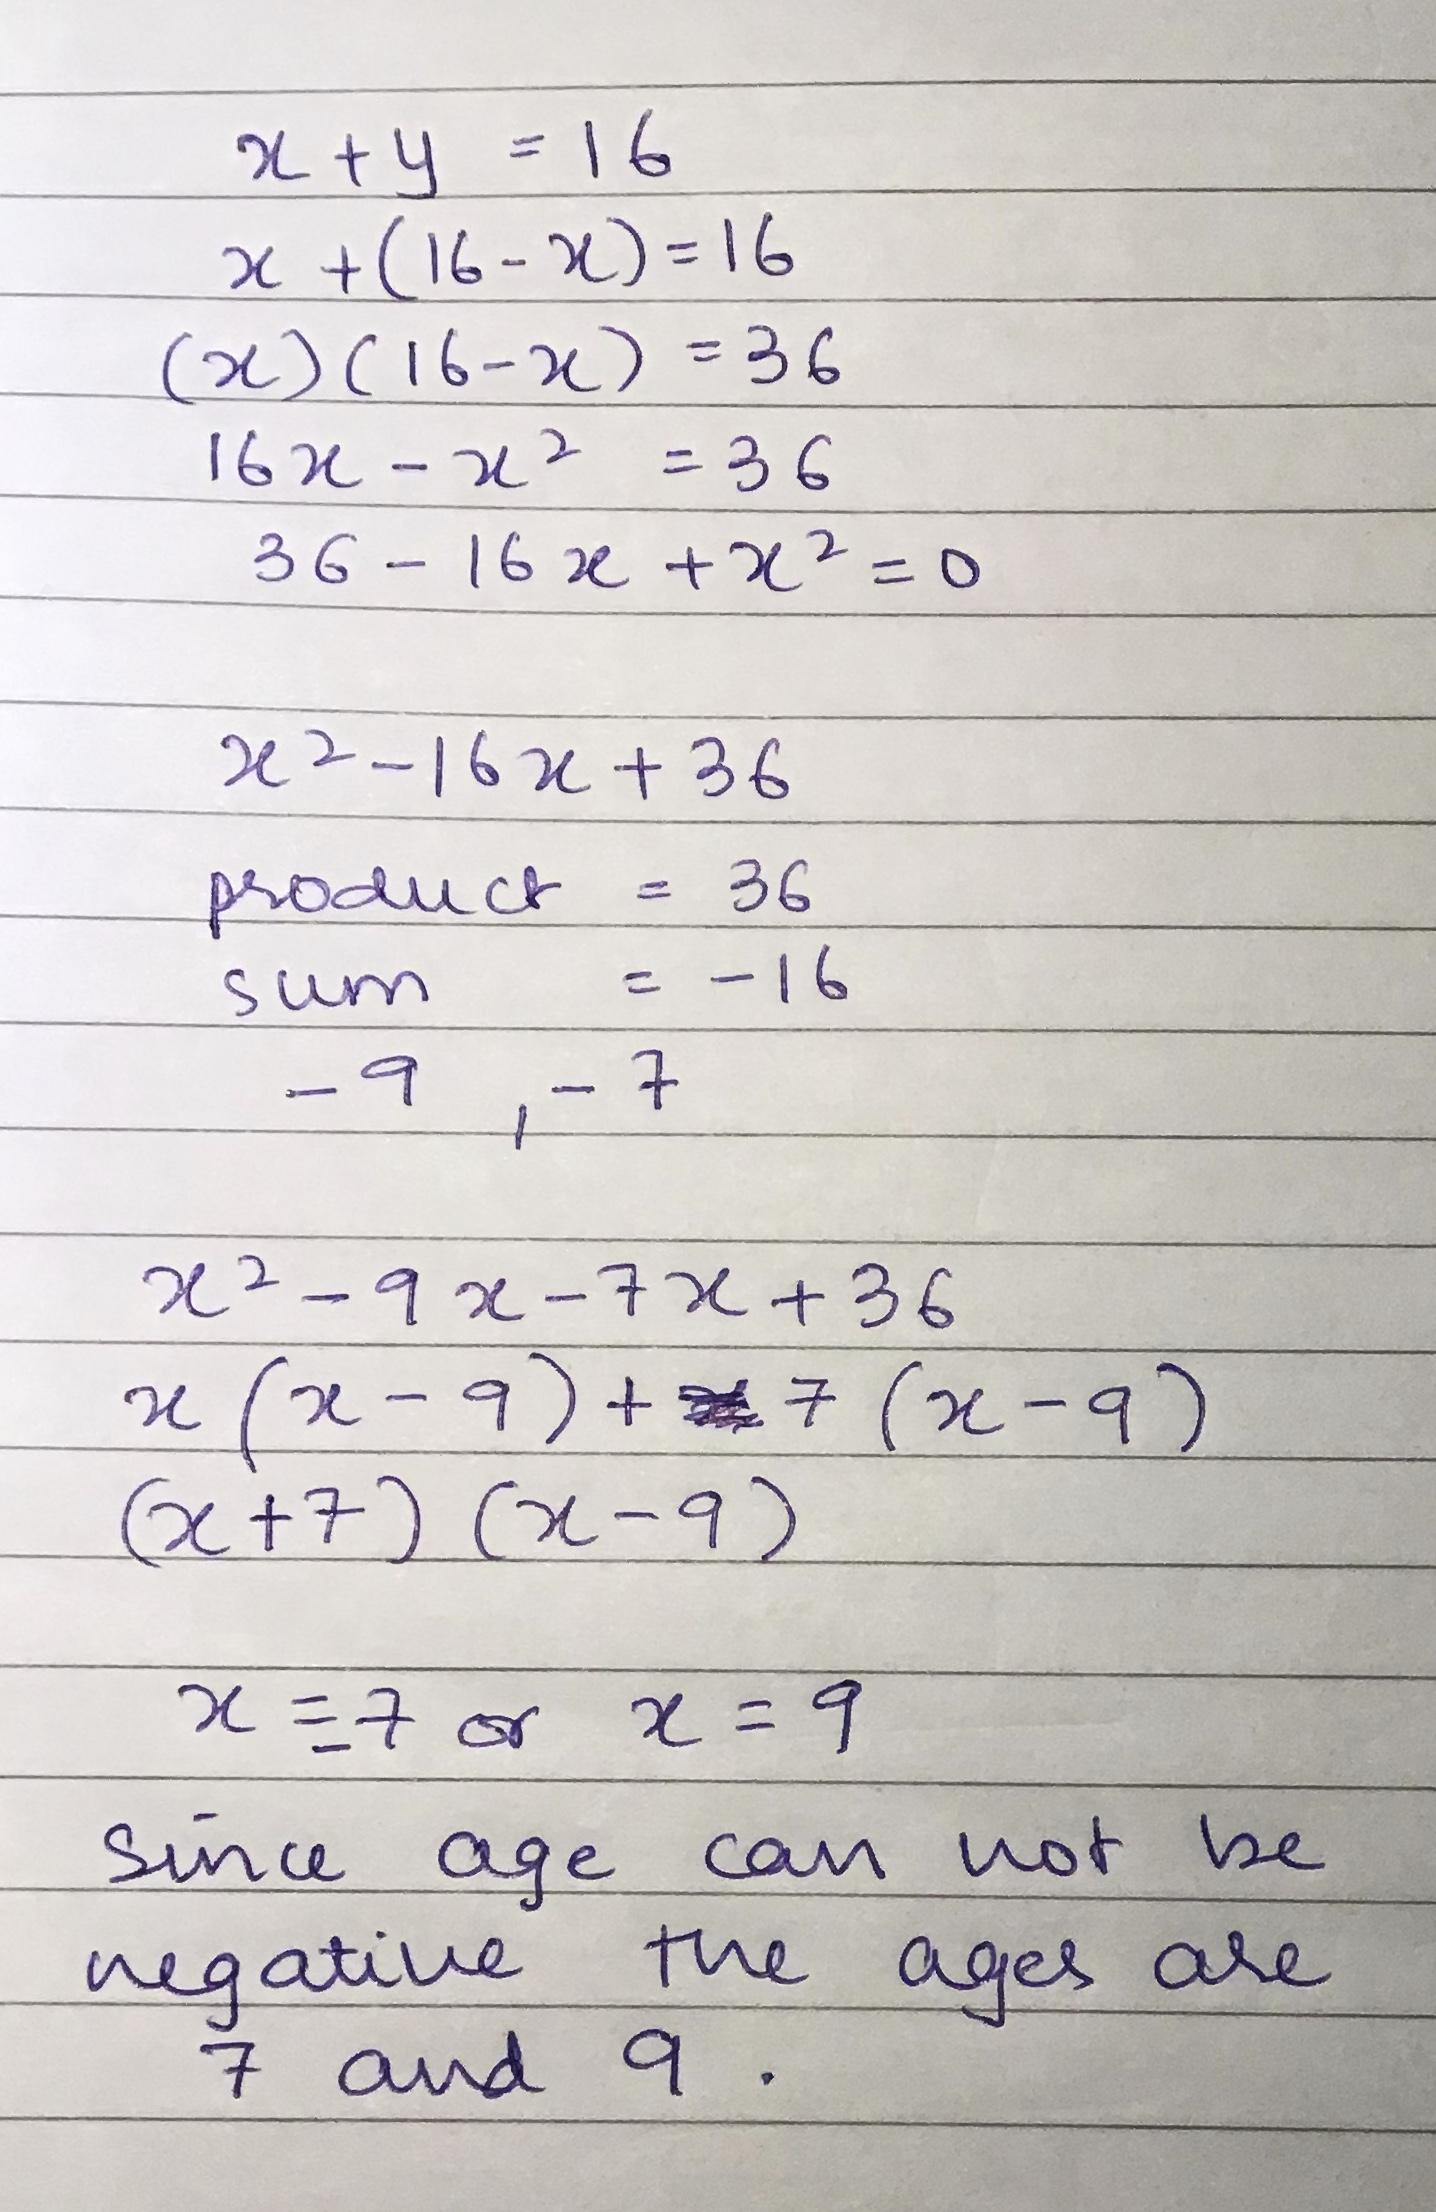 x + y = 16
x + (16 - x) = 16
(x) (16 - x) = 36
16x - x² = 36
36 - 16x + x² = 0
x² - 16x + 36
product = 36
sum = -16
-9 , -7
x² - 9x - 7x + 36
x (x - 9) + 7 (x - 9)
(x + 7) (x - 9)
x = -7 or x = 9
Since age can not be
negative the ages are
7 and 9 .